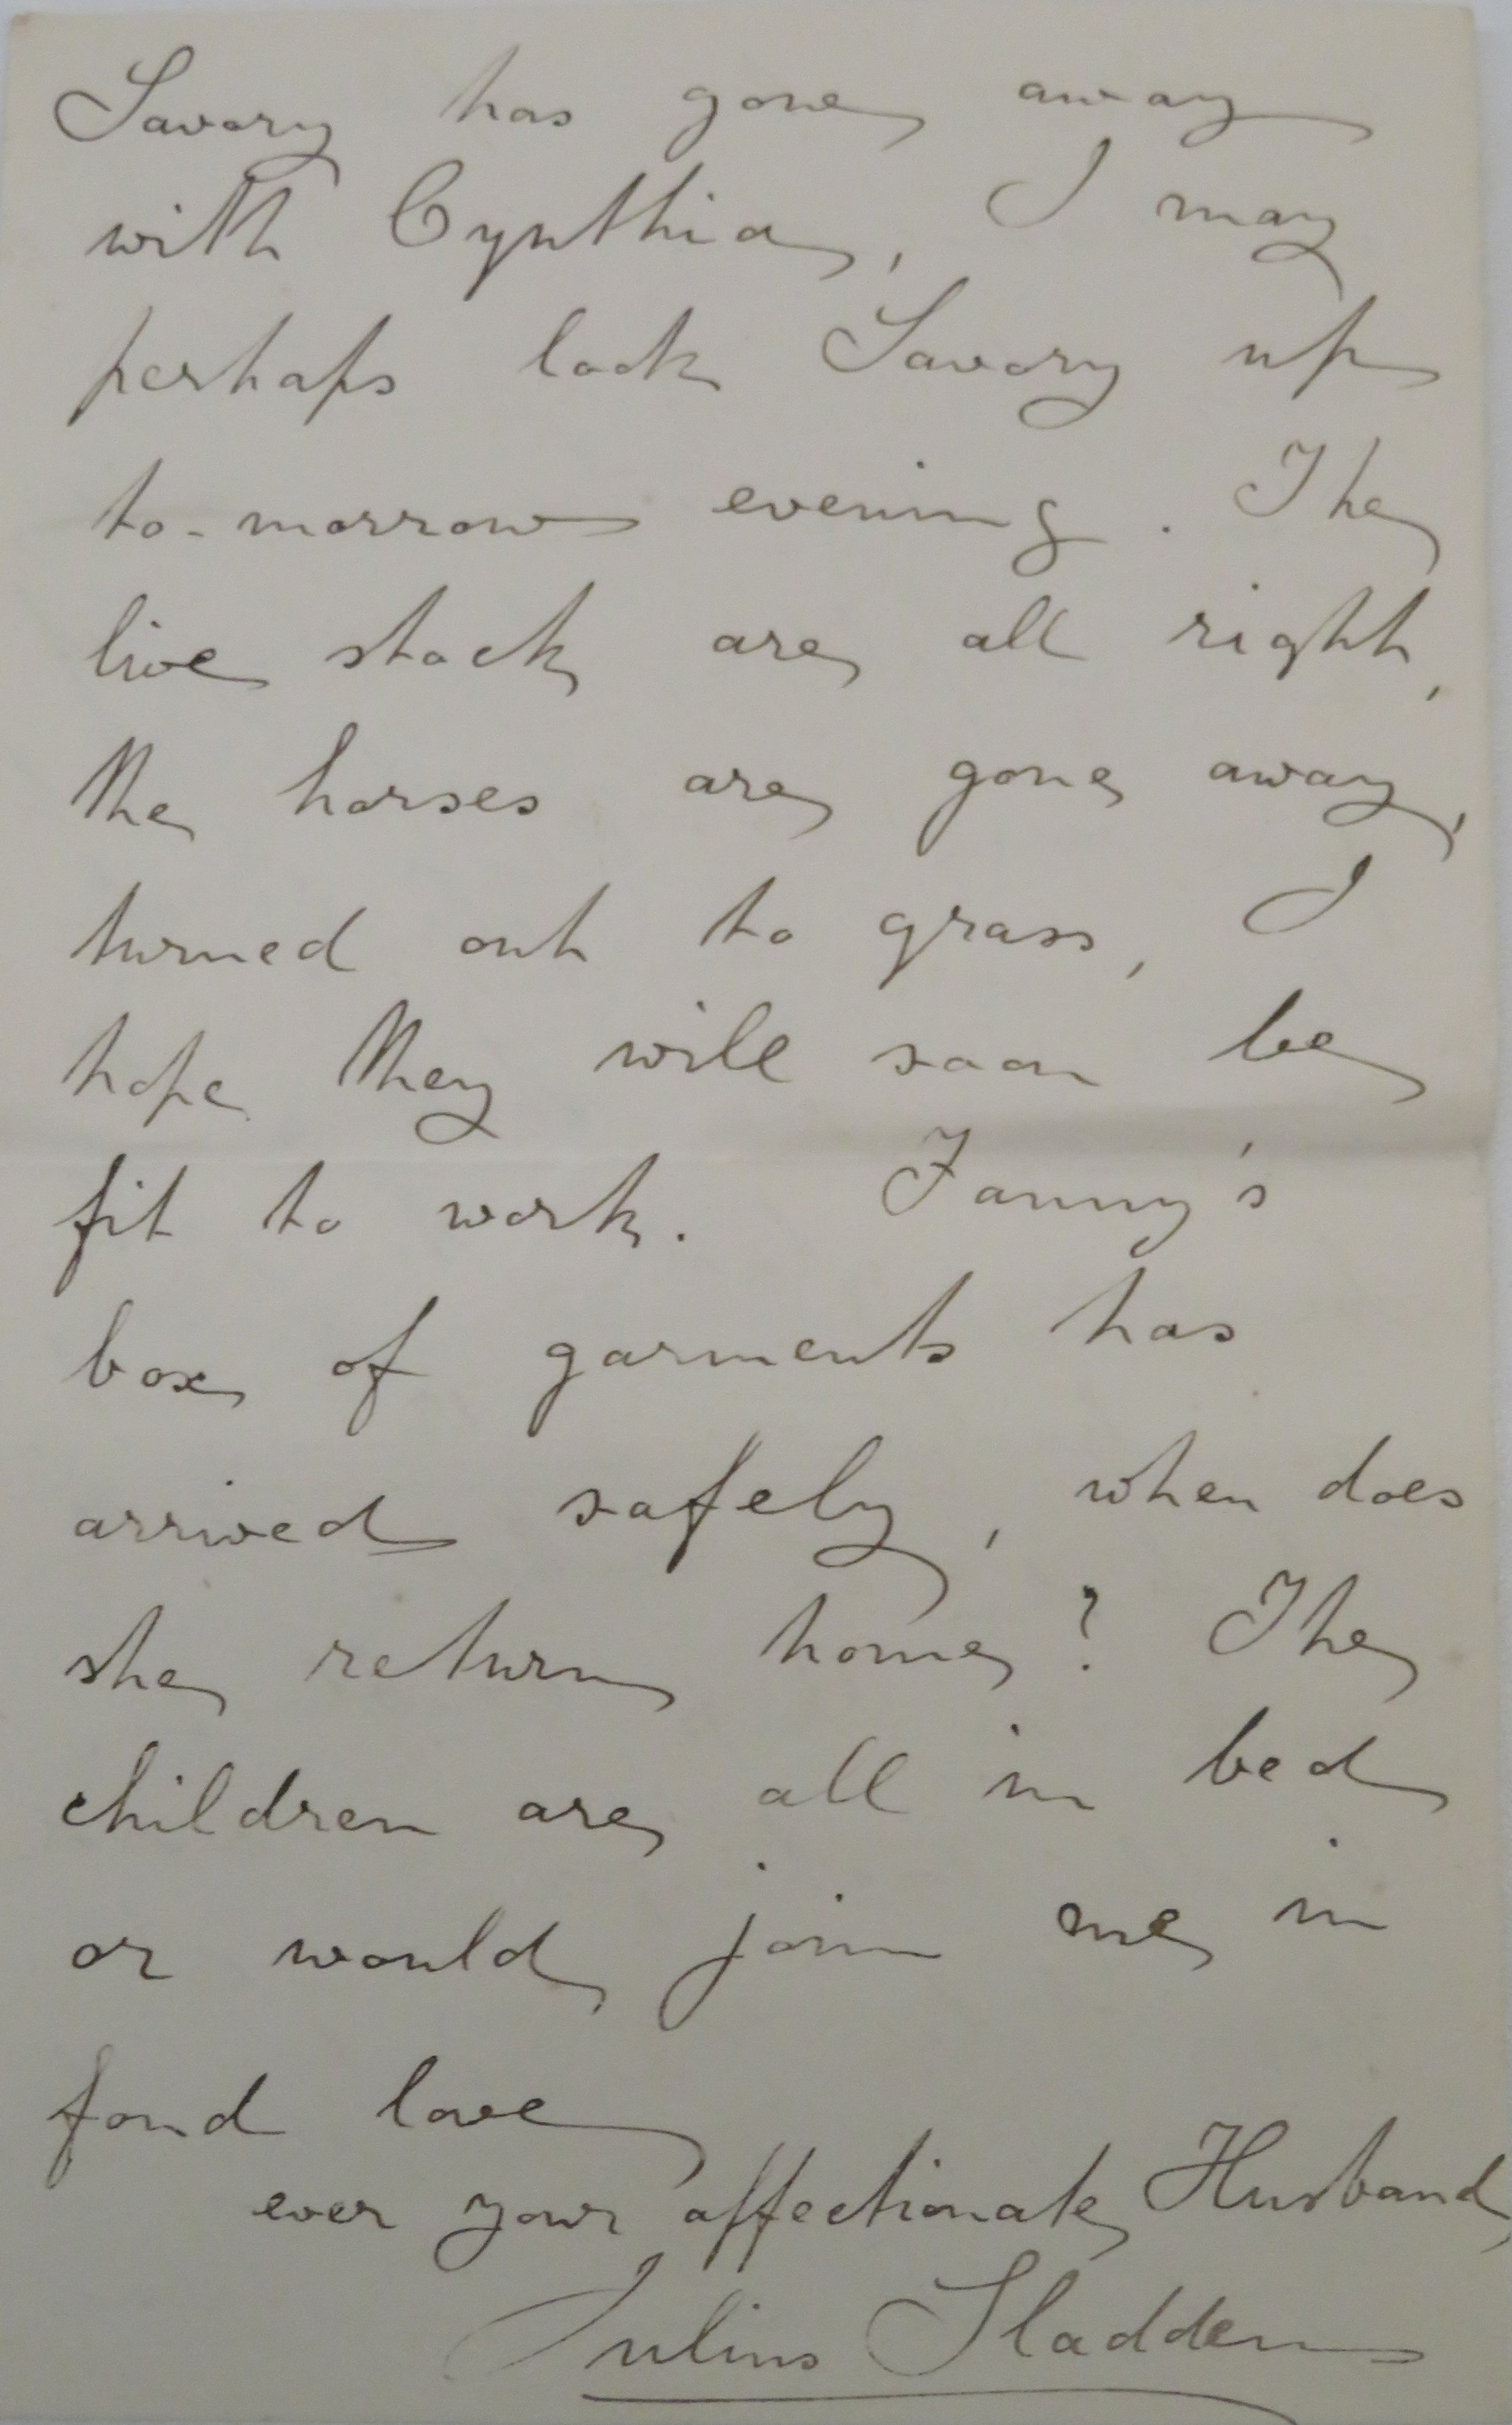 Savory has gone away
with Cynthia, I may
perhaps look Savory up
to-morrow evening. The
live stock are all right,
the horses are gone away,
turned out to grass, I
hope they will soon be
fit to work. Fanny's
box of garments has
arrived safely, when does
she return home? The
children are all in bed
or would join me in
fond love
ever your affectionate Husband,
Julius Sladden